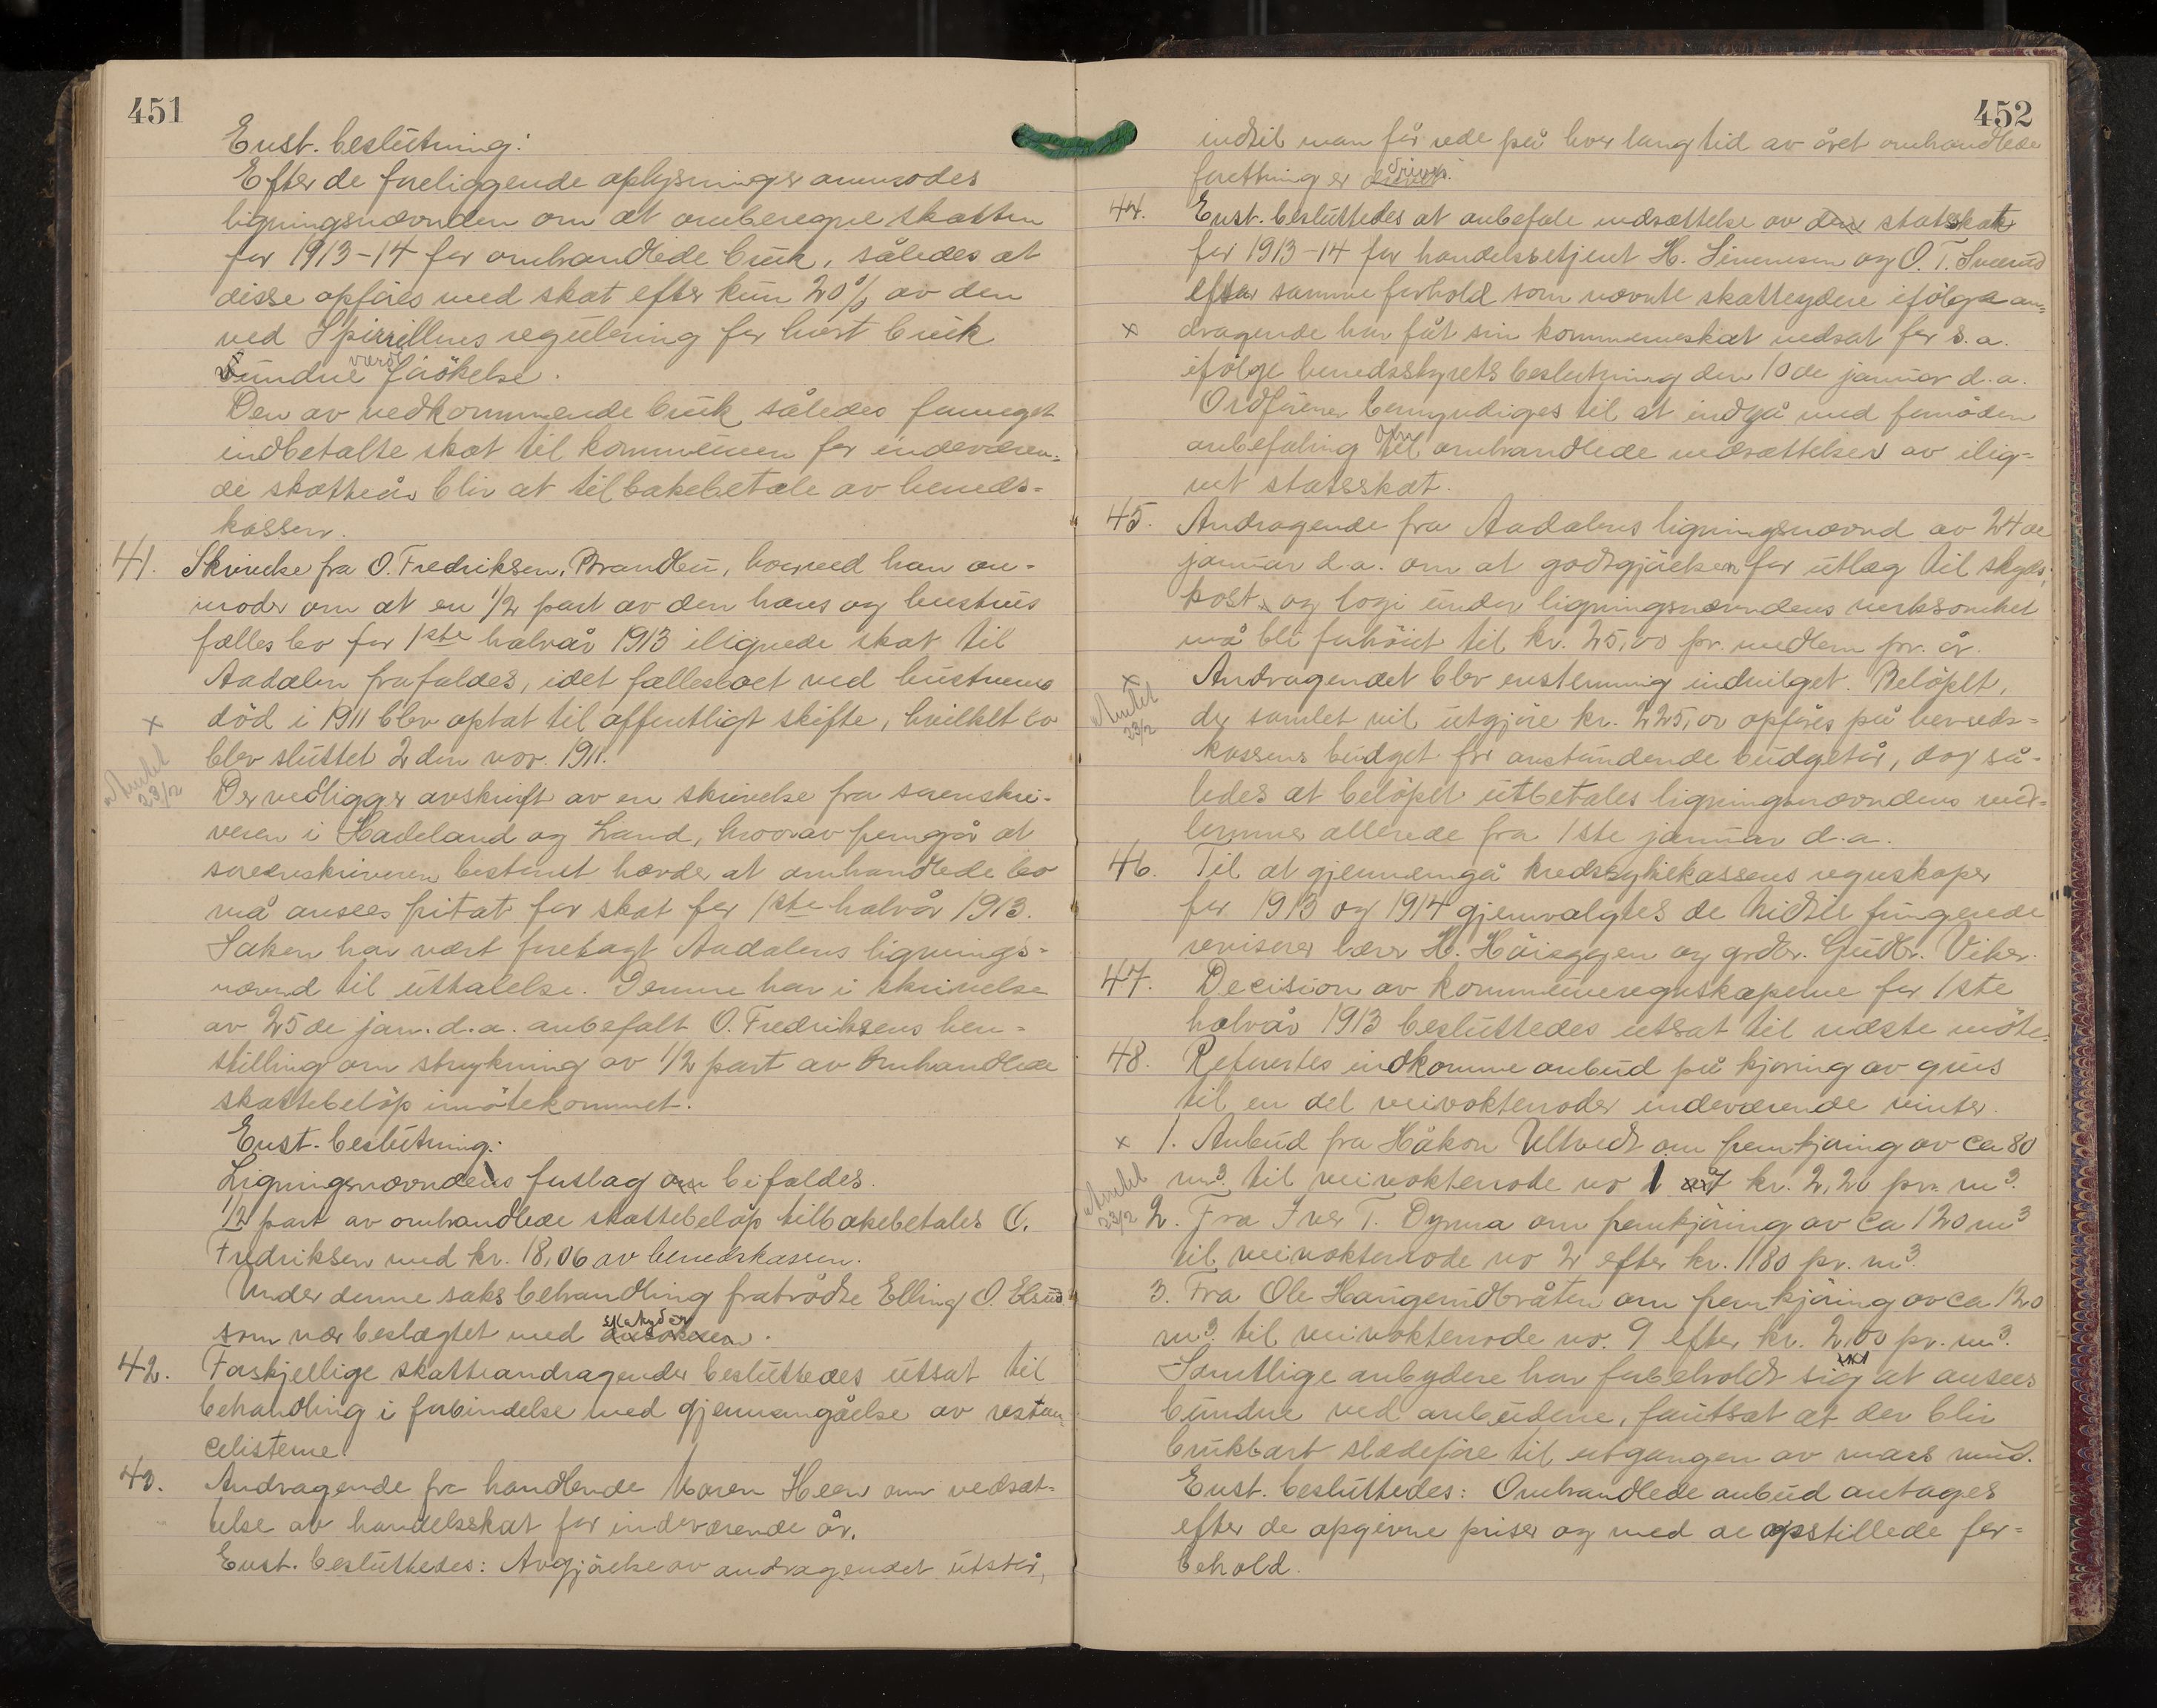 451
Enst. beslutning:
Efter de foreliggende oplysninger anmodes
ligningsnævnden om at omberegne skatten
for 1913-14 for omhandlede bruk, således at
disse opføres med skat efter kun 20% av den
ved Spirillens regulering for hvert bruk
vundne værdiforøkelse.
Den av vedkommende bruk således formeget
indbetalte skat til kommunen for indeværen-
de skatteår blir at tilbakebetale av herreds-
kassen.
41. Skrivelse fra O. Fredriksen, Brandbu, hvorved han an-
moder om at en 1/2 part av den hans og hustrus
fælles bo for 1ste halvår 1913 ilignede skat til
Aadalen frafaldes, idet fællesboet ved hustruens
× død i 1911 blev optat til offentligt skifte, hvilket bo
blev sluttet 2den nov. 1911.
Andet 23/2
Der vedligger avskrift av en skrivelse fra sorenskri-
veren i Hadeland og Land, hvorav fremgår at
sorenskriveren bestemt hævder at omhandlede bo
må ansees fritat for skat for 1ste halvår 1913.
Saken har vært forelagt Aadalens lignings-
nævnd til uttalelse. Denne har i skrivelse
av 25de jan. d.a. anbefalt O. Fredriksens hen-
stilling om strykning av 1/2 part av omhandlede
skattebeløp imøtekommet.
Enst. beslutning:
Ligningsnævndens forslag om bifaldes.
1/2 part av omhandlede skattebeløp tilbakebetales O.
Fredriksen med kr. 18,06 av herredskassen.
Under denne saks behandling fratrådte Elling O. Elsrud
som nær beslægtet med skatyder.
42. Forskjellige skatteandragender besluttedes utsat til
behandling i forbindelse med gjennemgåelse av restan-
celisterne.
43. Andragende fra handlende Maren Heen om nedsæt-
telse av handelsskat for indeværende år.
Enst. besluttedes: Avgjørelse av andragendet utstår,
452
indtil man får rede på hvor lang tid av året omhandlede
forretning er drevet.
44. Enst. besluttedes at anbefale nedsættelse av den statsskat
for 1913-14 for handelsbetjent H. Simensen og O. T. Sværud
efter samme forhold som nævnte skatteydere ifølge an-
× dragende har fåt sin kommuneskat nedsat for s.a.
ifølge herredsstyrets beslutning den 10de januar d.a.
Ordføreren bemyndiges til at indgå med fornøden
anbefaling om omhandlede nedsættelser av ilig-
net statsskat.
45. Andragende fra Aadalens ligningsnævnd av 24de
januar d.a. om at godtgjørelsen for utlæg til skyds,
kost og logi under ligningsnævndens virksomhet
må bli forhøiet til kr. 25,00 pr. medlem pr. år.
× Andragendet blev enstemmig indvilget. Beløpet,
Andet 23/2
der samlet vil utgjøre kr. 225,00 opføres på herreds-
kassens budget for anstundende budgetår, dog så-
ledes at beløpet utbetales ligningsnævndens med-
lemmer allerede fra 1ste januar d.a.
46. Til at gjennemgå kredssykekassens regnskaper
for 1913 og 1914 gjenvalgtes de hidtil fungerende
revisorer lærer H. Høieggen og grdbr. Gudbr. Viker.
47. Decision av kommuneregnskaperne for 1ste
halvår 1913 besluttedes utsat til næste møte.
48. Refertes indkomne anbud på kjøring av grus
til en del veivokterroder indeværende vinter.
× 1. Anbud fra Håkon Ultvedt om fremkjøring av ca 80
m3 til veivokterrode no 1 a kr. 2,20 pr. m3.
Andet 23/2
2. Fra Iver T. Oymra om fremkjøring av ca 120 m3
til veivokterrode no 2 efter kr. 1,80 pr. m3
3. Fra Ole Haugerudbråten om fremkjøring av ca 120
m3 til veivokterrode no. 9 efter kr. 2,00 pr. m3.
Samtlige anbydere har forbeholdt sig at ansees
bundne ved anbudene, forutsat at der blir
brukbart slædeføre til utgangen av mars mnd.
Enst. besluttedes: Omhandlede anbud antages
efter de opgivne priser og med de opstillede for-
behold.